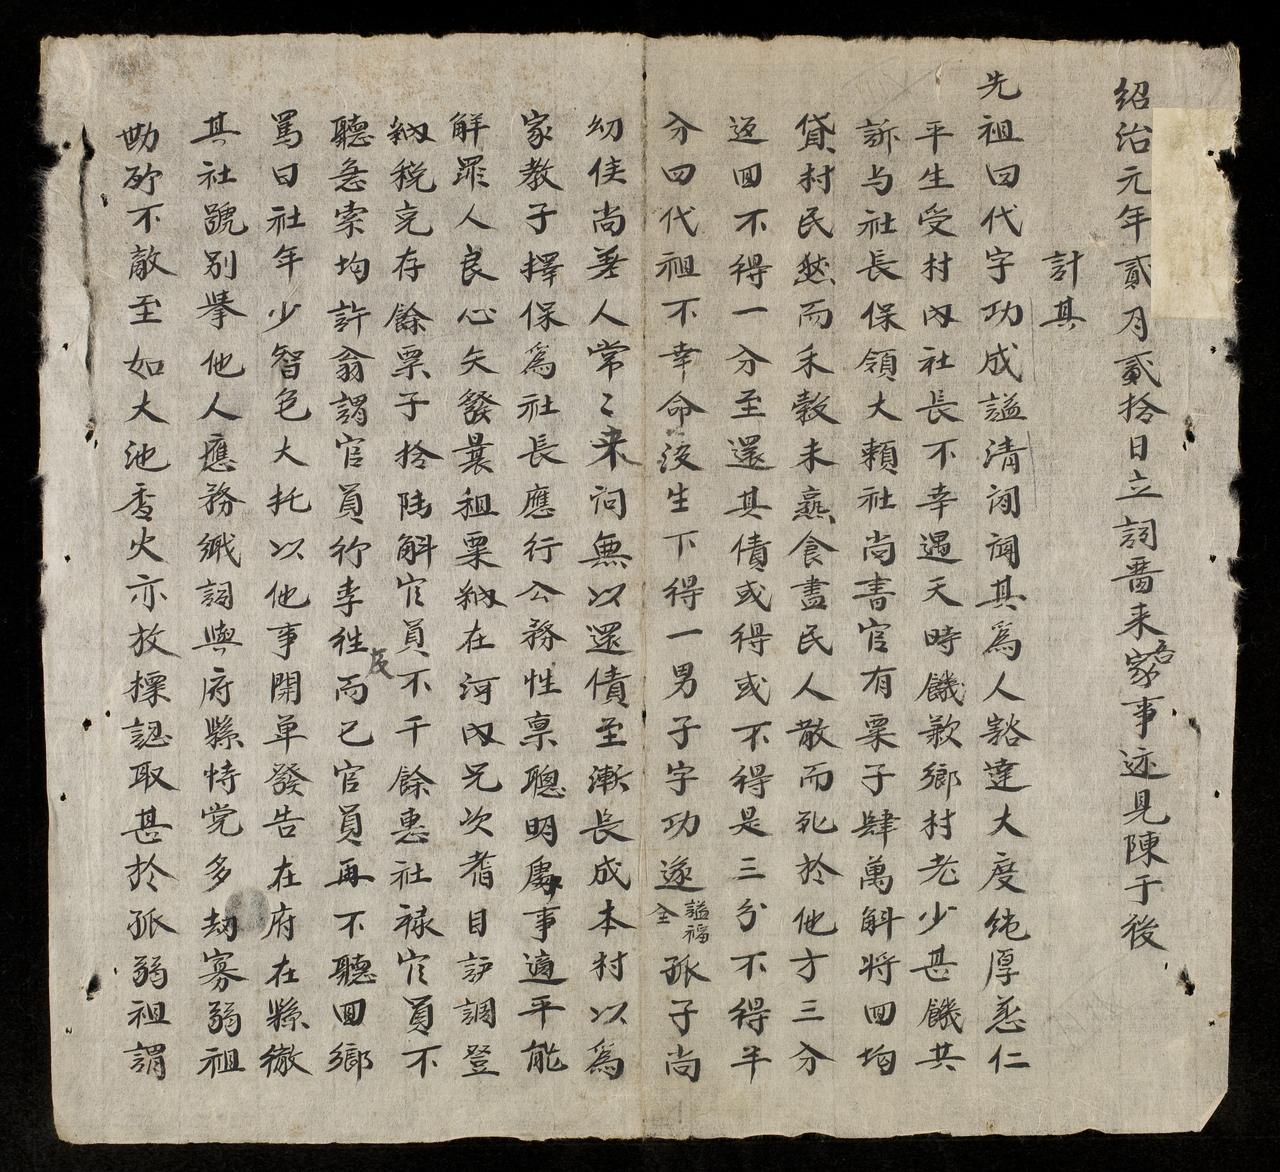 紹治元年貳月貳拾日立詞啚来家各事迹見陳于後
計其
先祖曰代字功成謚清閒聞其爲人豁達大度純厚慈仁
平生受村內社長不幸遇天時饑歉鄉村老少甚饑其
訴与社長保領大賴社尚書官有粟子肆萬斛将回均
貸村民然而禾穀未熟食盡民人散而死於他方三分
返回不得一分至還其債或得或不得是三分不得半
分曰代祖不幸命没生下得一男子字功遂謚福全孤子尚
幼侯尚善人常〻来问無以還債至漸長成本村以爲
家教子擇保爲社長應行公務性禀聰明處事適平能
解罪人良心矢發曩租粟納在河內兄次耆目訝調登
納税克存餘粟子拾陆斛官員不干餘惠社禄官員不
聽急索均許翁謂官員行李徃反而已官員再不聽回鄉
罵曰社年少智色大托以他事開单發告在府在縣徹
其社號别擧他人應務緘詞與府縣恃党多劫寡弱祖
勘斫不敵至如大池香火亦放摽認取甚於孤弱祖謂